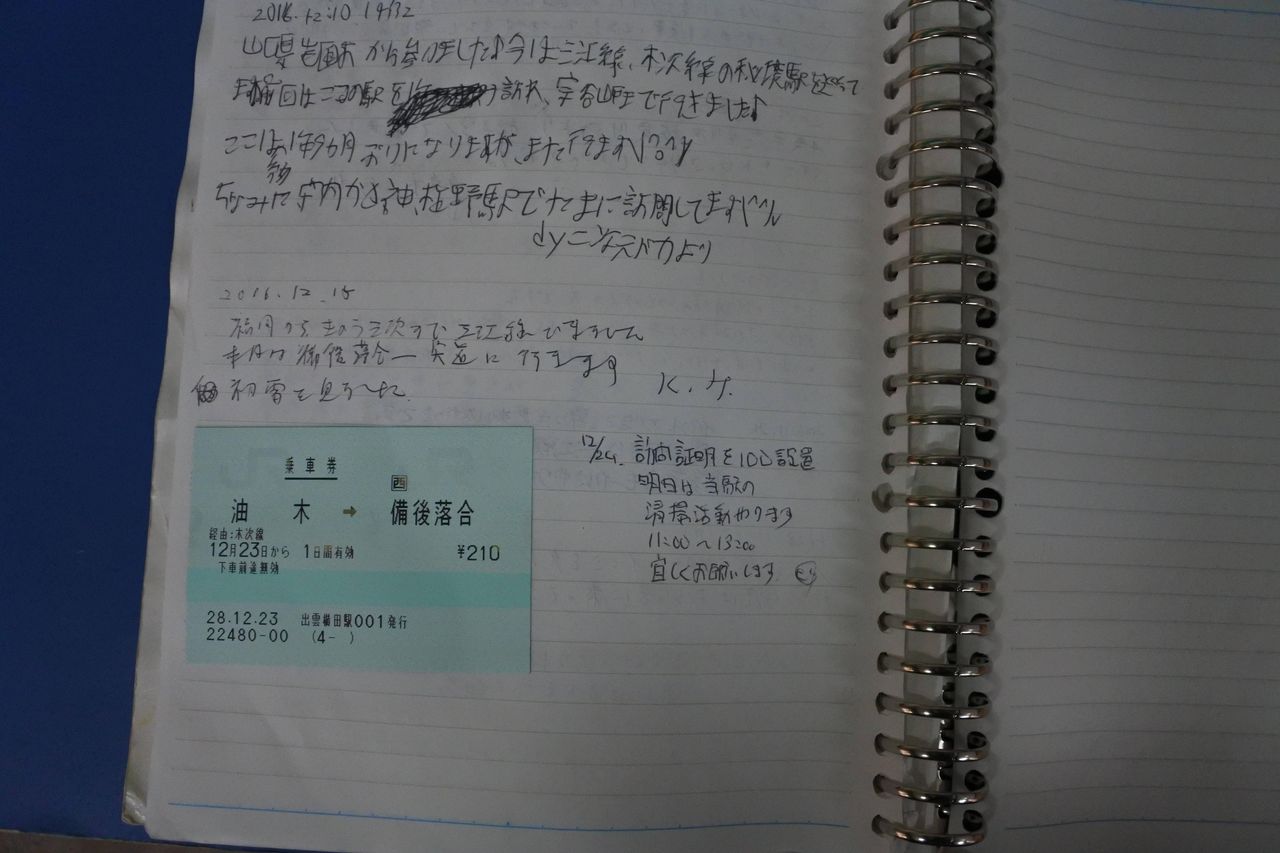 2016.12.10 19:32
山口県岩国市から参りました♪今は三江線、木次線の秘境駅を
回はこの駅を 訪れ、 まで行きました♪
ここは約1年9ヵ月ぶりになりますが、また行きます
ちなみに 内から 神 野駅でたまに訪問してます
より
2016.12.15
福岡からきのう三次まで三江線できました
本日は備後落合ー宍道に行きます
初雪を見ました。 K.H.
乗車券
西
油木→備後落合
経由:木次線
12月23日から 1日間有効 ¥210
下車前途無効
28.12.23 出雲横田駅001発行
22480-00 (4- )
12/24. 訪問証明を100設置
明日は当駅の
清掃活動やります
11:00〜13:00
宜しくお願いします